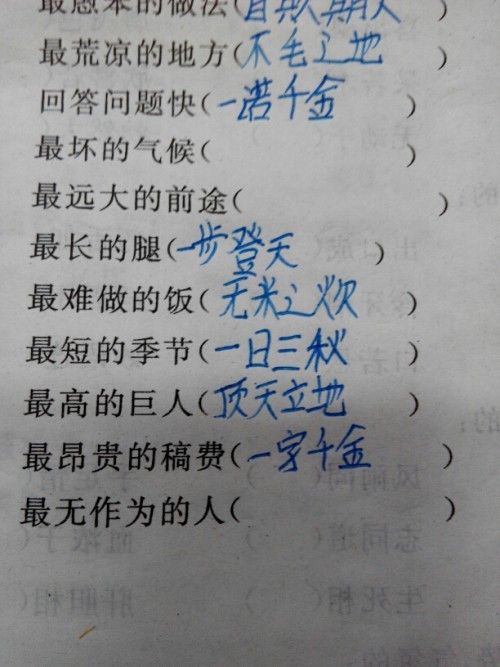 最愚笨的做法(自欺欺人)
最荒凉的地方(不毛之地)
回答问题快(一诺千金)
最坏的气候(          )
最远大的前途(          )
最长的腿(一步登天)
最难做的饭(无米之炊)
最短的季节(一日三秋)
最高的巨人(顶天立地)
最昂贵的稿费(一字千金)
最无作为的人(          )